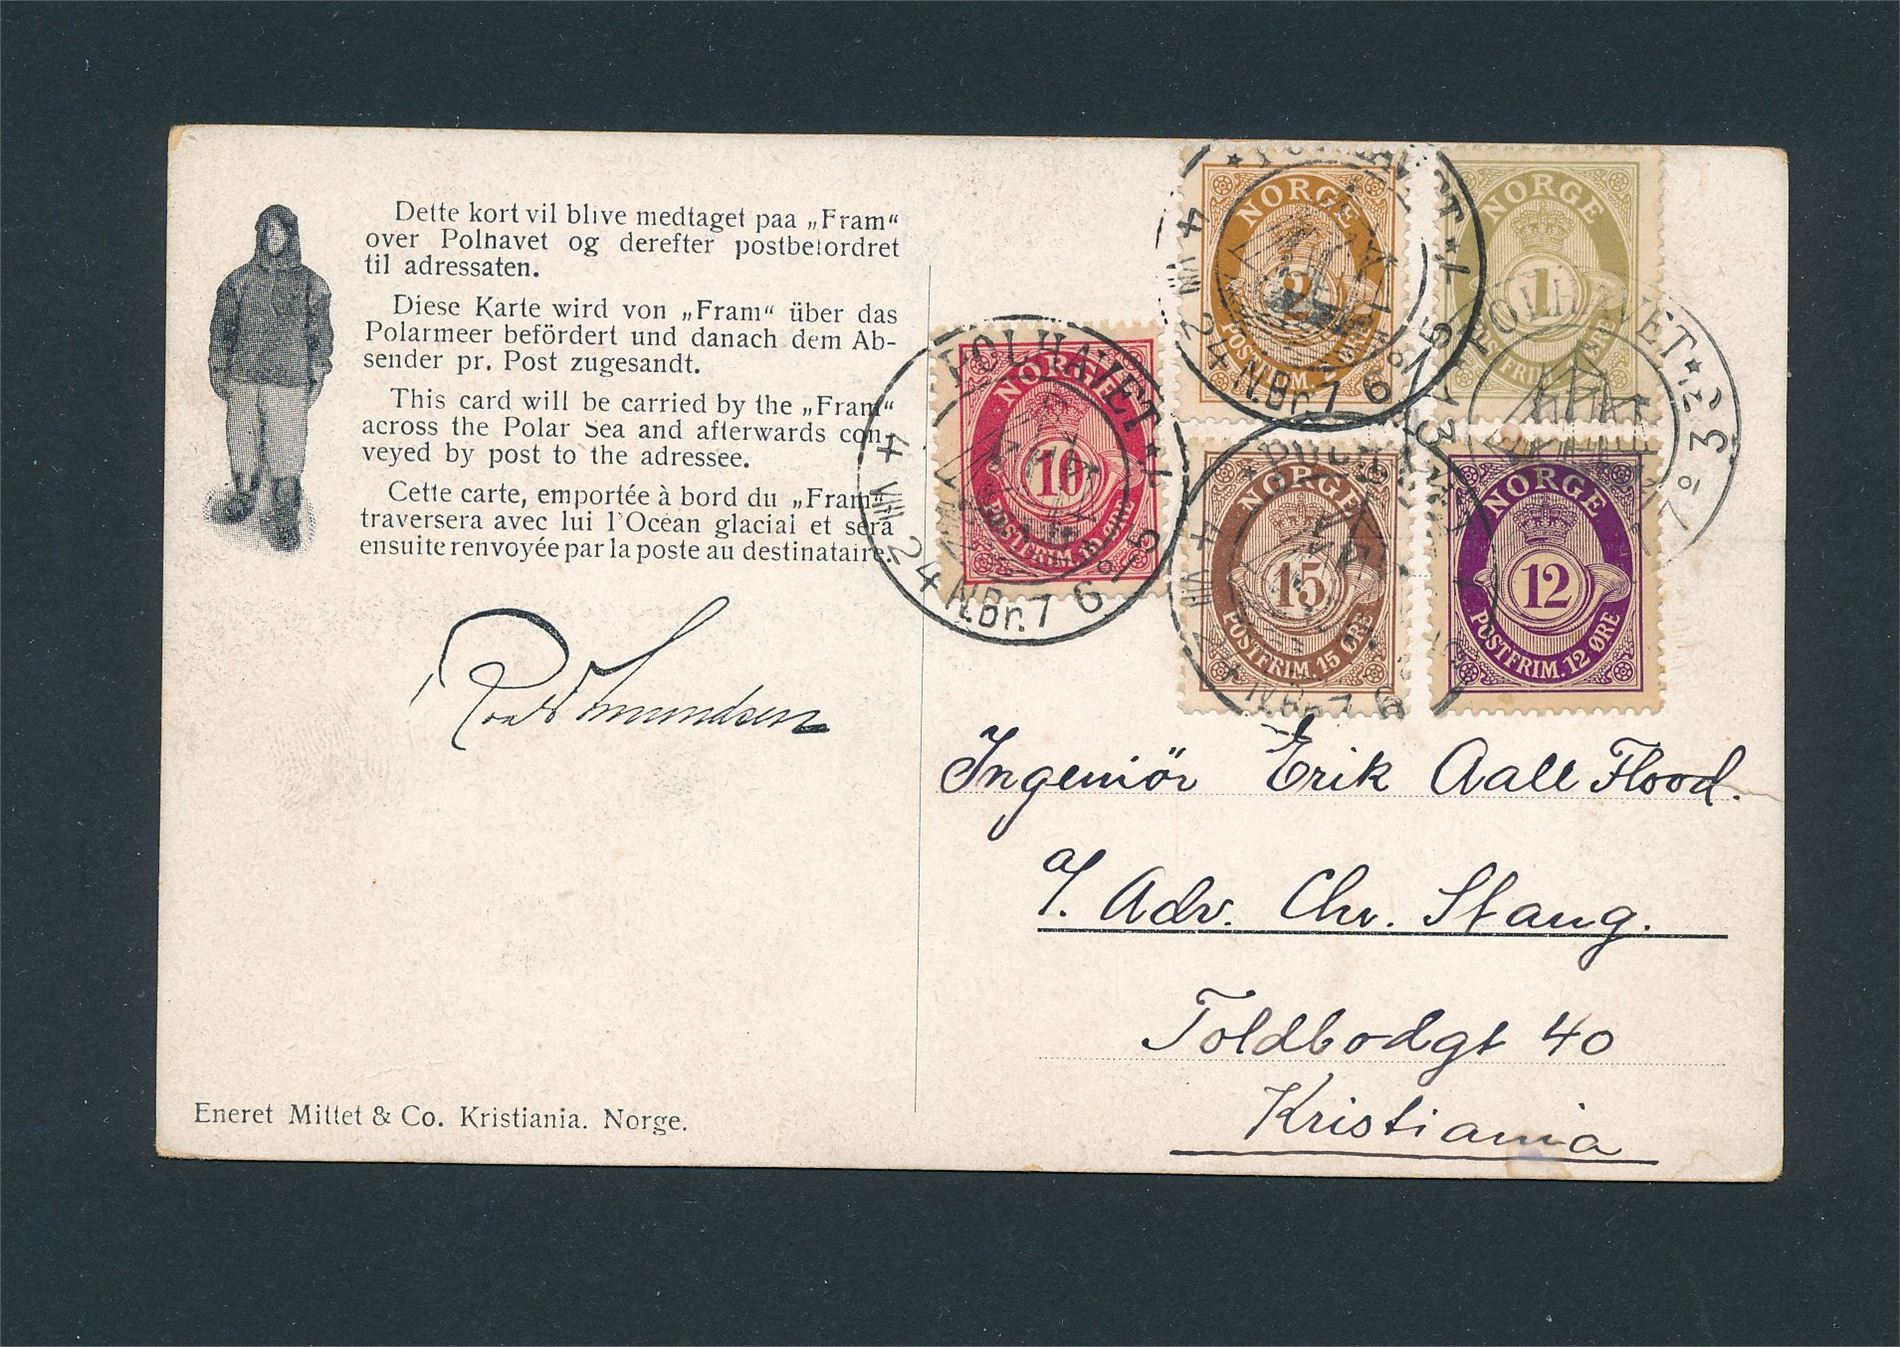 Dette kort vil blive medtaget paa „Fram“
over Polhavet og derefter postbefordret
til adressaten.
Diese Karte wird von „Fram“ über das
Polarmeer befördert und danach dem Ab-
sender pr. Post zugesandt.
This card will be carried by the „Fram“
across the Polar Sea and afterwards con-
veyed by post to the adressee.
Cette carte, emportée à bord du „Fram“
traversera avec lui l'Océan glacial et sera
ensuite renvoyée par la poste au destinataire.
Roald Amundsen
Eneret Mittet & Co. Kristiania. Norge.
NORGE
10
POSTFRIM. 10 ØRE
POLHAVET
4 VIII 24 N.Br. 76° 5
NORGE
5
POSTFRIM. ØRE
POLHAVET
4 VIII 24 N.Br. 76° 5
NORGE
1
POSTFRIM. ØRE
POLHAVET
NORGE
15
POSTFRIM. 15 ØRE
NORGE
12
POSTFRIM. 12 ØRE
Ingeniör Erik Aall Flood.
a/. Adv. Chr. Stang.
Toldbodgt 40
Kristiania